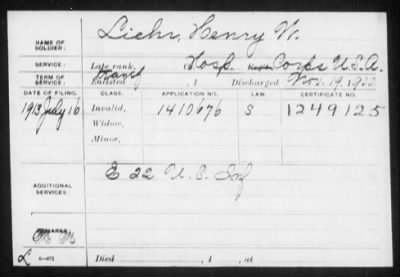 NAME OF SOLDIER: Liehr, Henry W.
SERVICE: Late rank, Hosp. Corps U.S.A.
TERM OF SERVICE: Enlisted , 1 Discharged Nov. 19, 1900
DATE OF FILING. CLASS. APPLICATION NO. LAW. CERTIFICATE NO.
1913 July 16 Invalid, 1410676 S 1249125
Widow,
Minor,
ADDITIONAL SERVICES: E 22 U.S. Inf
REMARKS:
L Died , 1 , at